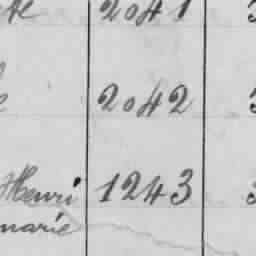 2041
2042
Henri 1243
marie